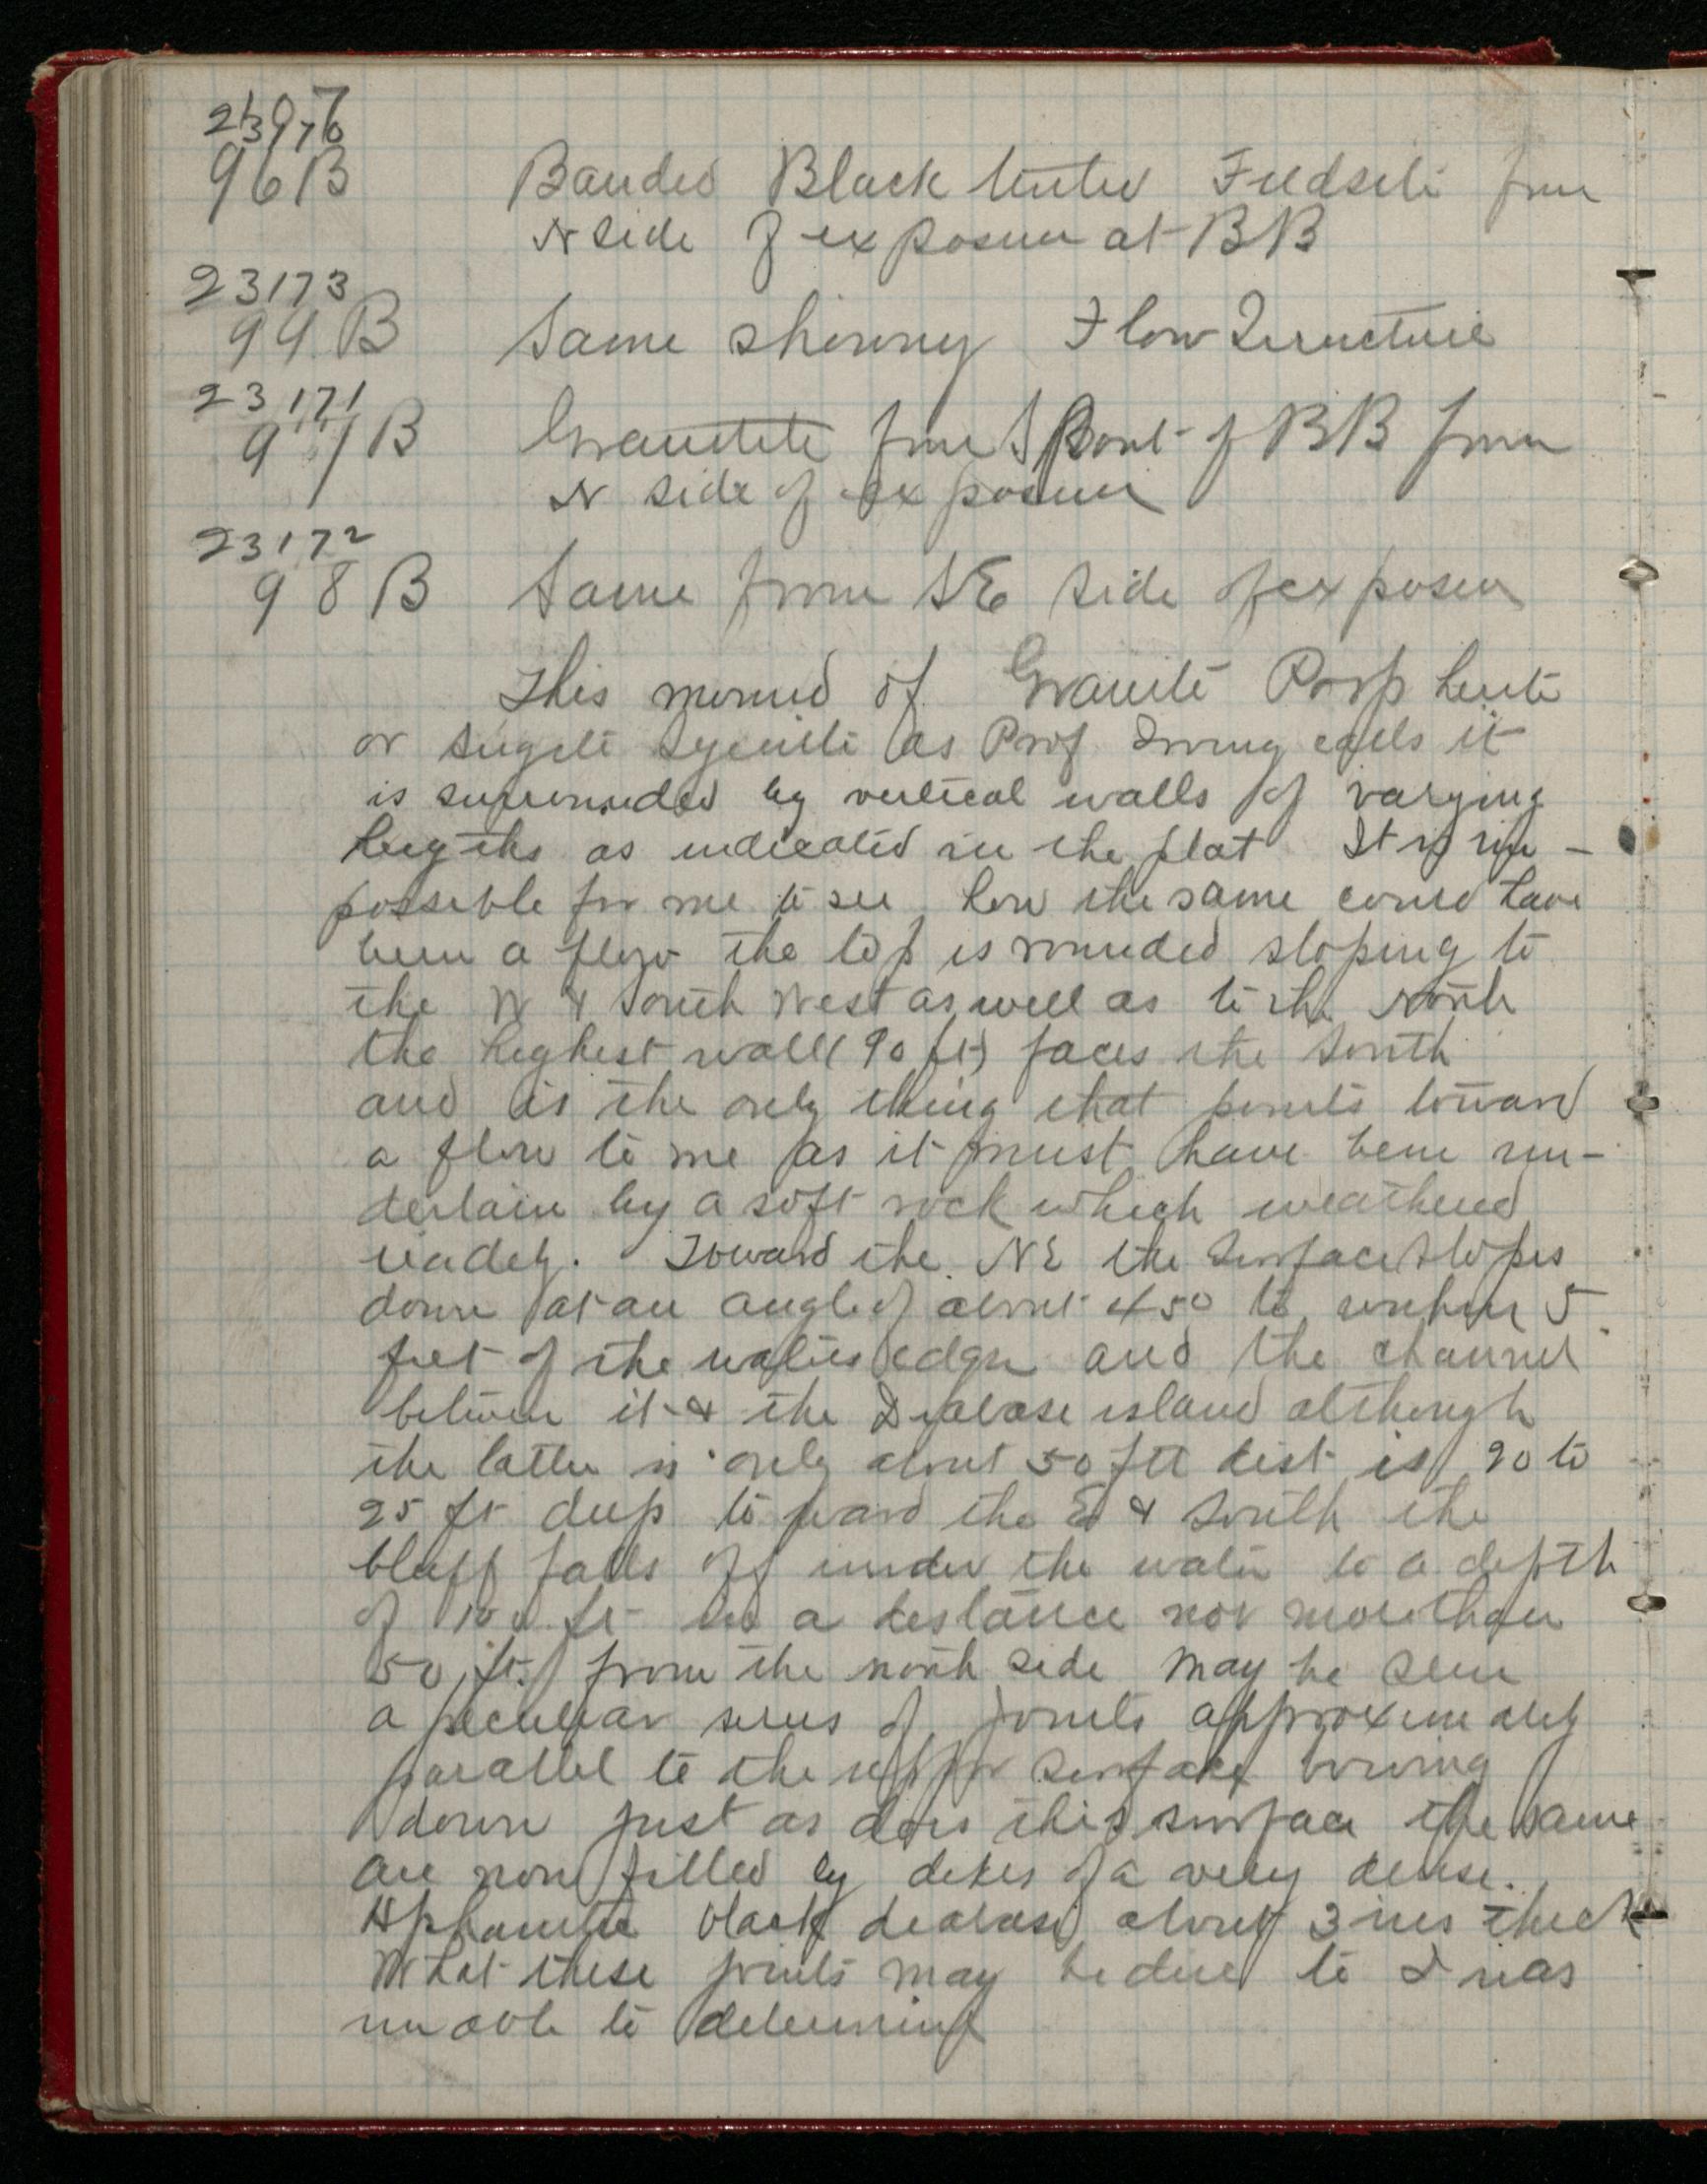 96B Banded Black tinted Feldsite from
N side of exposure at BB
23173
99B Same showing Flow Structure
23171
97B Granitite from S Point of BB from
N side of exposure
23172
98B Same from SE side of exposure
This mound of Granite Porp
or Augite Syenite as Prof Irving calls it
is surrounded by vertical walls of varying
heigths as indicated in the plat It is im-
possible for me to see how the same could have
been a flow the top is rounded sloping to
the W & South West as well as to the North
the highest wall (90 ft) faces the South
and is the only thing that points toward
a flow to me as it must have been un-
derlain by a soft rock which weathered
readely. Toward the NE the Surface slopes
down at an angle of about 45° to within 5
feet of the waters edge and the channel
between it & the Diabase island although
the latter is only about 50 ft dist is 20 to
25 ft deep toward the E & South the
bluff falls off under the water to a depth
of 100 ft in a distance not more than
50 ft. from the north side may be seen
a peculiar series of joints approximately
parallel to the upper surface
down just as does this surface the same
are now filled by dikes of a very dense.
Aphanitic black diabase about 3 ins thick
What these joints may be due to I was
unable to determine